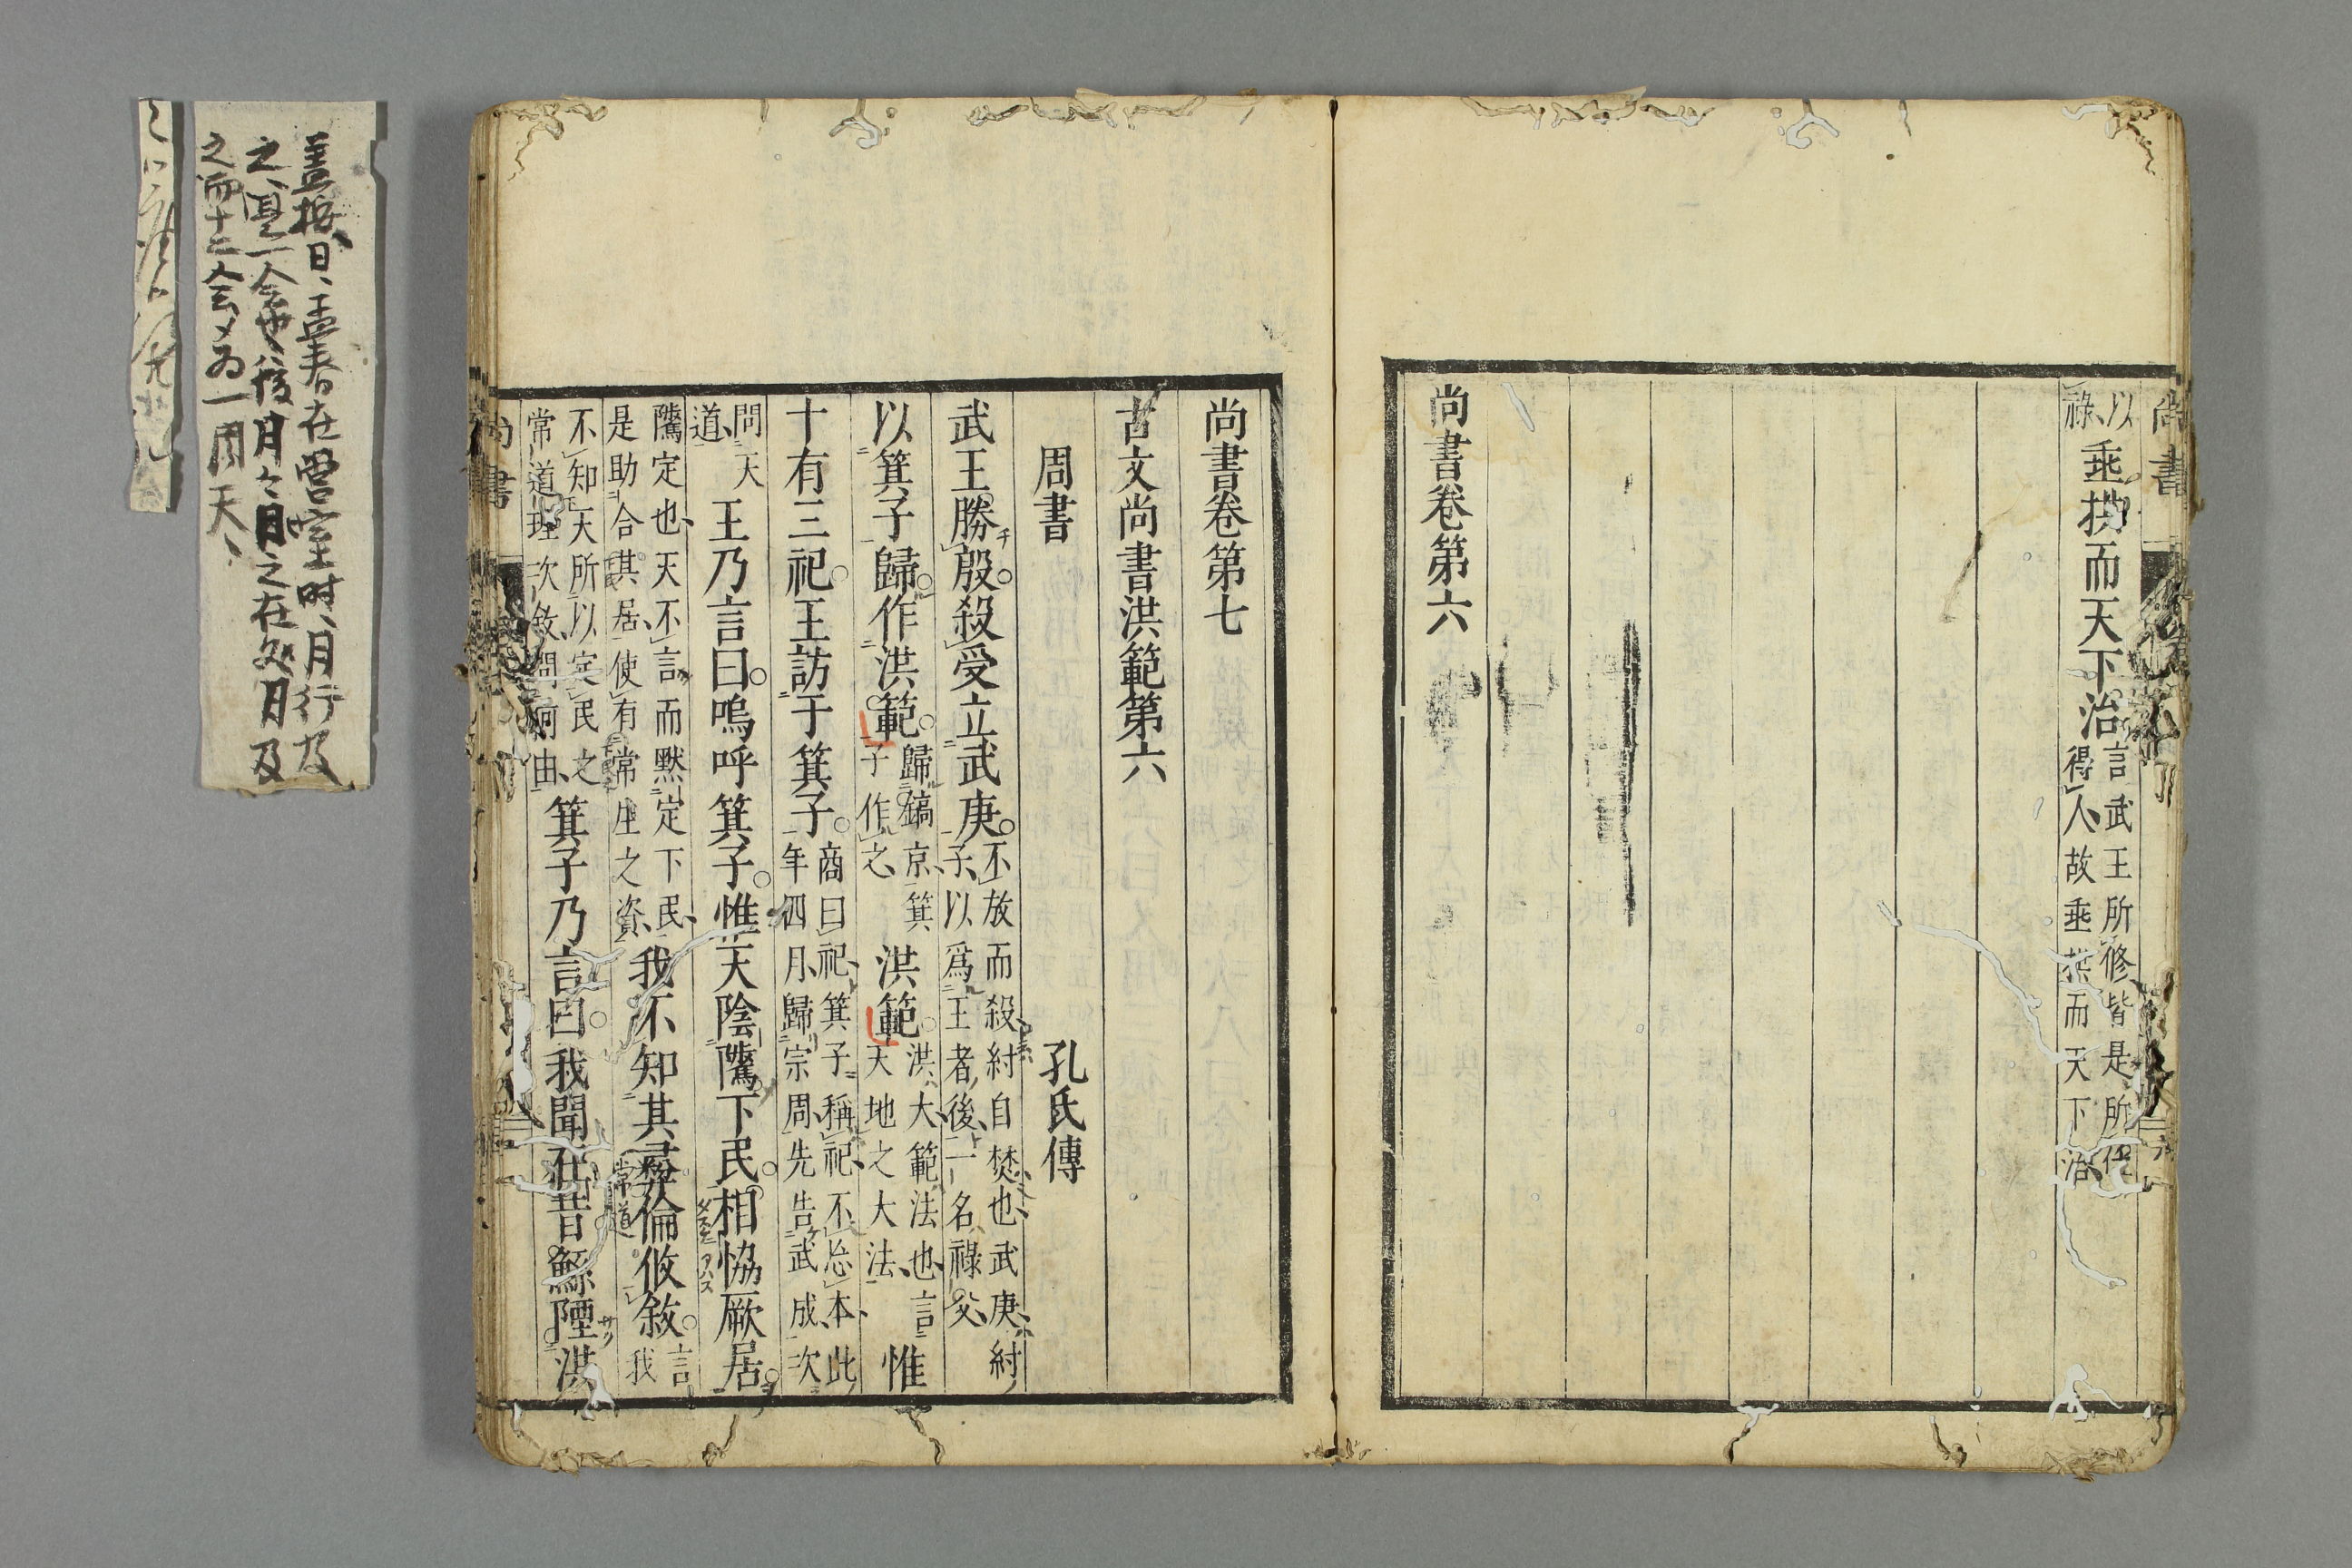 尚書
以
祿
垂拱而天下治
言武王所修皆是所任
得人故垂拱而天下治
尚書卷第六
尚書卷第七
古文尚書洪範第六
周書
孔氏傳
武王勝殷殺受立武庚
不放而殺紂自焚也武庚紂
子以爲王者後一名祿父
以箕子歸作洪範
歸鎬京箕
子作之
洪範
洪大範法也言
天地之大法
惟
十有三祀王訪于箕子
商曰祀箕子稱祀不忘本此
年四月歸宗周先告武成次
問天
道
王乃言曰嗚呼箕子惟天陰騭下民相恊厥居
騭定也天不言而黙定下民
是助合其居使有常生之資
我不知其彝倫攸敘
言
我
常道
不知天所以定民之
常道理次敘問何由
箕子乃言曰我聞在昔鯀陻洪
尚書
蓋按日孟春在営室时月行及
之
之而十二会ヲ為一周天